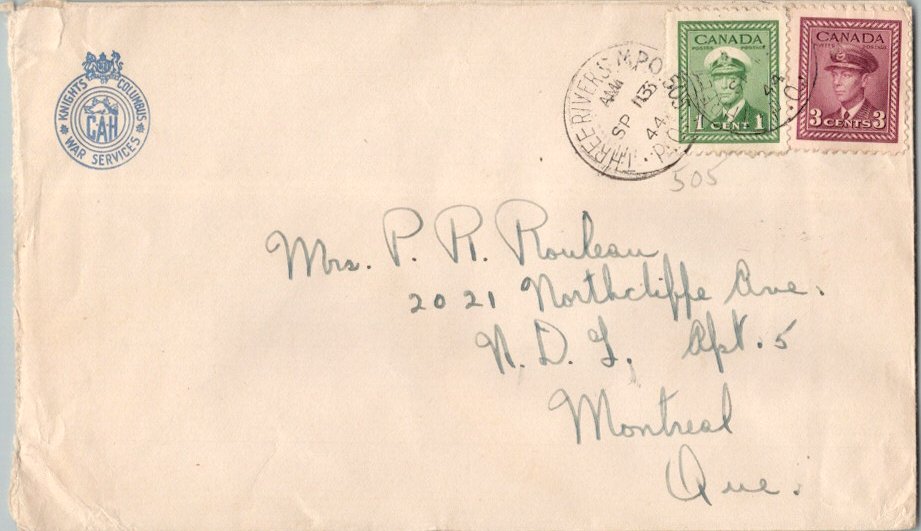 KNIGHTS OF COLUMBUS
CAH
WAR SERVICES
THREE RIVERS M.P.O. 505
P.Q.
SP 11
44
CANADA
POSTES POSTAGE
1 CENT 1
CANADA
POSTES POSTAGE
3 CENTS 3
505
Mrs. P. R. Rouleau
2021 Northcliffe Ave.
N. D. G. Apt. 5
Montreal
Que.